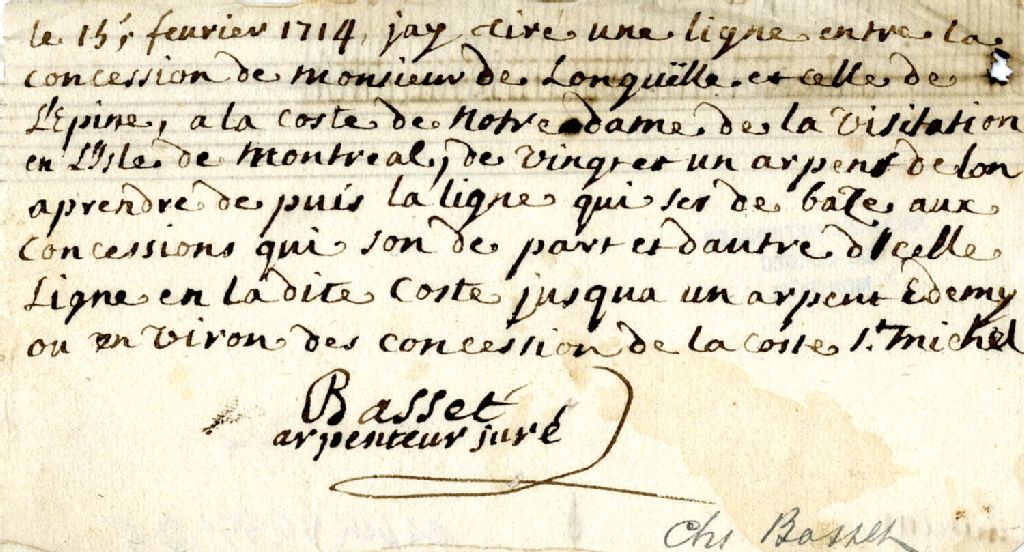 le 15, fevrier 1714, jay tiré une ligne entre la
concession de monsieur de Longuëlle. et celle de
L'Epine, a la coste de Notre dame de la Visitation
en L'Isle de Montreal, de vingt et un arpens de lon
aprendre de puis la ligne qui sert de baze aux
concessions qui son de part et dautre d'Icelle
Ligne en la dite Coste jusqua un arpent Edemy
ou en viron des concession de la coste S.t michel
Basset
arpenteur juré
Chs Basset